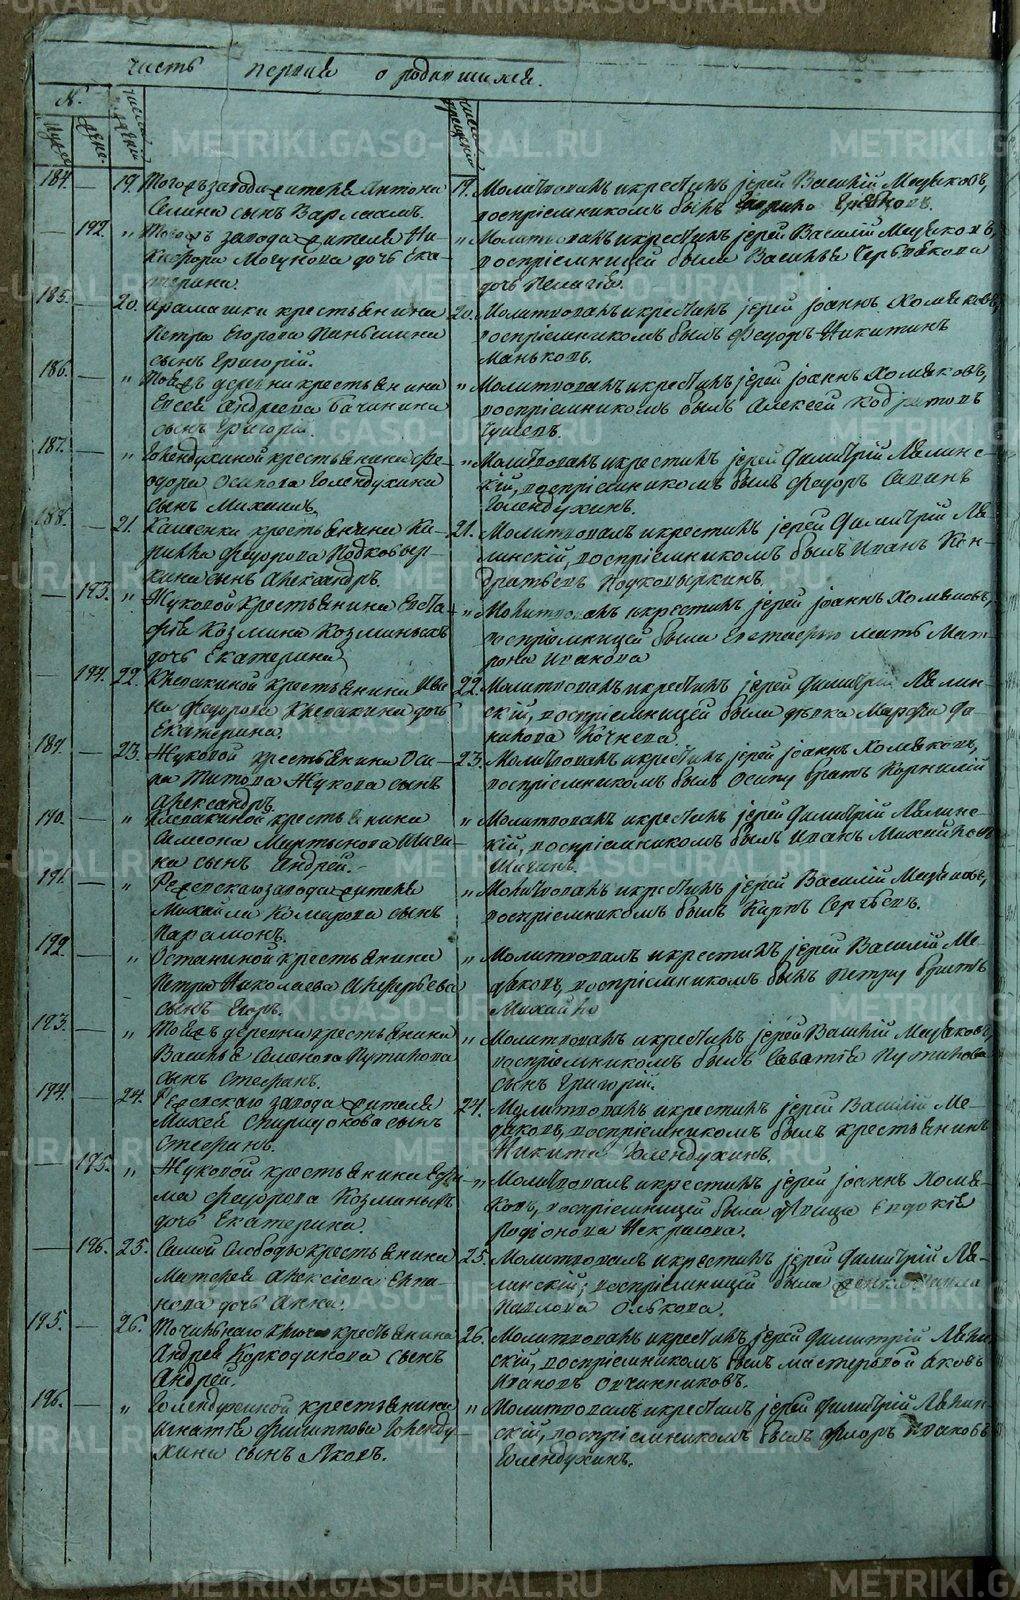 часть первая о родившихся.
№.
муж.
жен.
число рождений
число крещений
184. — 19. Тогожъ завода жителя Антона
Селина сынъ Варлаамъ.
19. Молитвовалъ и крестилъ іерей Василій
воспріемникомъ былъ
— 192. „ Тогожъ завода жителя Ни-
кифора дочь Ека-
терина.
„ Молитвовалъ и крестилъ іерей Василій
воспріемницей была Василья
дочь Пелагія.
185. — 20. Арамашки крестьянина
Петра Егорова Паньшина
сынъ Григорій.
20. Молитвовалъ и крестилъ іерей Іоаннъ Хомяковъ,
воспріемникомъ былъ Федоръ Никитинъ
Маньковъ.
186. — „ Тоежъ деревни крестьянина
Евсея Андреева Бачинина
сынъ Григорій.
„ Молитвовалъ и крестилъ іерей Іоаннъ Хомяковъ,
воспріемникомъ былъ Алексей
187. — „ Голендухиной крестьянина Фе-
дора Осипова Голендухина
сынъ Михаилъ.
„ Молитвовалъ и крестилъ іерей Димитрій Лялинс-
кій, воспріемникомъ былъ Федоръ Савинъ
Голендухинъ.
188. — 21. крестьянина Ки-
рилла Федорова Подковыр-
кина сынъ Александръ.
21. Молитвовалъ и крестилъ іерей Димитрій Ля-
линскій, воспріемникомъ былъ Иванъ Кон-
дратьевъ Подковыркинъ.
— 193. „ Жуковой крестьянина Евста-
фія Козмина Козминыхъ
дочь Екатерина
„ Молитвовалъ и крестилъ іерей Іоаннъ Хомяковъ,
воспріемницей была Евстафью мать Мат-
рона Иванова
— 194. 22. Клевакиной крестьянина Ива-
на Федорова Клевакина дочь
Екатерина.
22. Молитвовалъ и крестилъ іерей Димитрій Лялин-
скій, воспріемницей была девка Марфа Да-
нилова Кочнева.
189. — 23. Жуковой крестьянина Оси-
па Титова Жукова сынъ
Александръ.
23. Молитвовалъ и крестилъ іерей Іоаннъ Хомяковъ,
воспріемникомъ былъ Осипу братъ Корнилій
190. — „ Клевакиной крестьянина
Симеона Мартынова Шиги-
на сынъ Андрей.
„ Молитвовалъ и крестилъ іерей Димитрій Лялинс-
кій, воспріемникомъ былъ Иванъ Михайловъ
Шигинъ.
191. — „ Режевскаго завода жителя
Михайла Комарова сынъ
Парамонъ.
„ Молитвовалъ и крестилъ іерей Василій
воспріемникомъ былъ Карпъ Сергѣевъ.
192. — „ Останиной крестьянина
Петра Николаева
сынъ Егоръ.
„ Молитвовалъ и крестилъ іерей Василій
воспріемникомъ былъ Петру братъ
Михайло
193. — „ Тоежъ деревни крестьянина
Василья Семенова Путилова
сынъ Стефанъ.
„ Молитвовалъ и крестилъ іерей Василій
воспріемникомъ былъ Савватія Путилова
сынъ Григорій.
194. — 24. Режевскаго завода жителя
Михея Спиридонова сынъ
Стефанъ.
24. Молитвовалъ и крестилъ іерей Василій
воспріемникомъ былъ крестьянинъ
Никита Голендухинъ.
— 195. „ Жуковой крестьянина Ефи-
ма Федорова Козминыхъ
дочь Екатерина.
„ Молитвовалъ и крестилъ іерей Іоаннъ Хомя-
ковъ, воспріемницей была девица Евдокія
Родіонова Некрасова.
— 196. 25. Самой Слободы крестьянина
Матфея Алексіева Епа-
нова дочь Анна.
25. Молитвовалъ и крестилъ іерей Димитрій Ля-
линскій; воспріемницей была
Павлова Олькова.
195. — 26. Точильнаго Ключа крестьянина
Андрея Коркодинова сынъ
Андрей.
26. Молитвовалъ и крестилъ іерей Димитрій Лялин-
скій, воспріемникомъ былъ мастеровой Яковъ
Ивановъ Овчинниковъ.
196. — „ Голендухиной крестьянина
Игнатія Филиппова Голенду-
хина сынъ Яковъ.
„ Молитвовалъ и крестилъ іерей Димитрій Лялин-
скій, воспріемникомъ былъ Флоръ Ивановъ
Голендухинъ.
METRIKI.GASO-URAL.RU